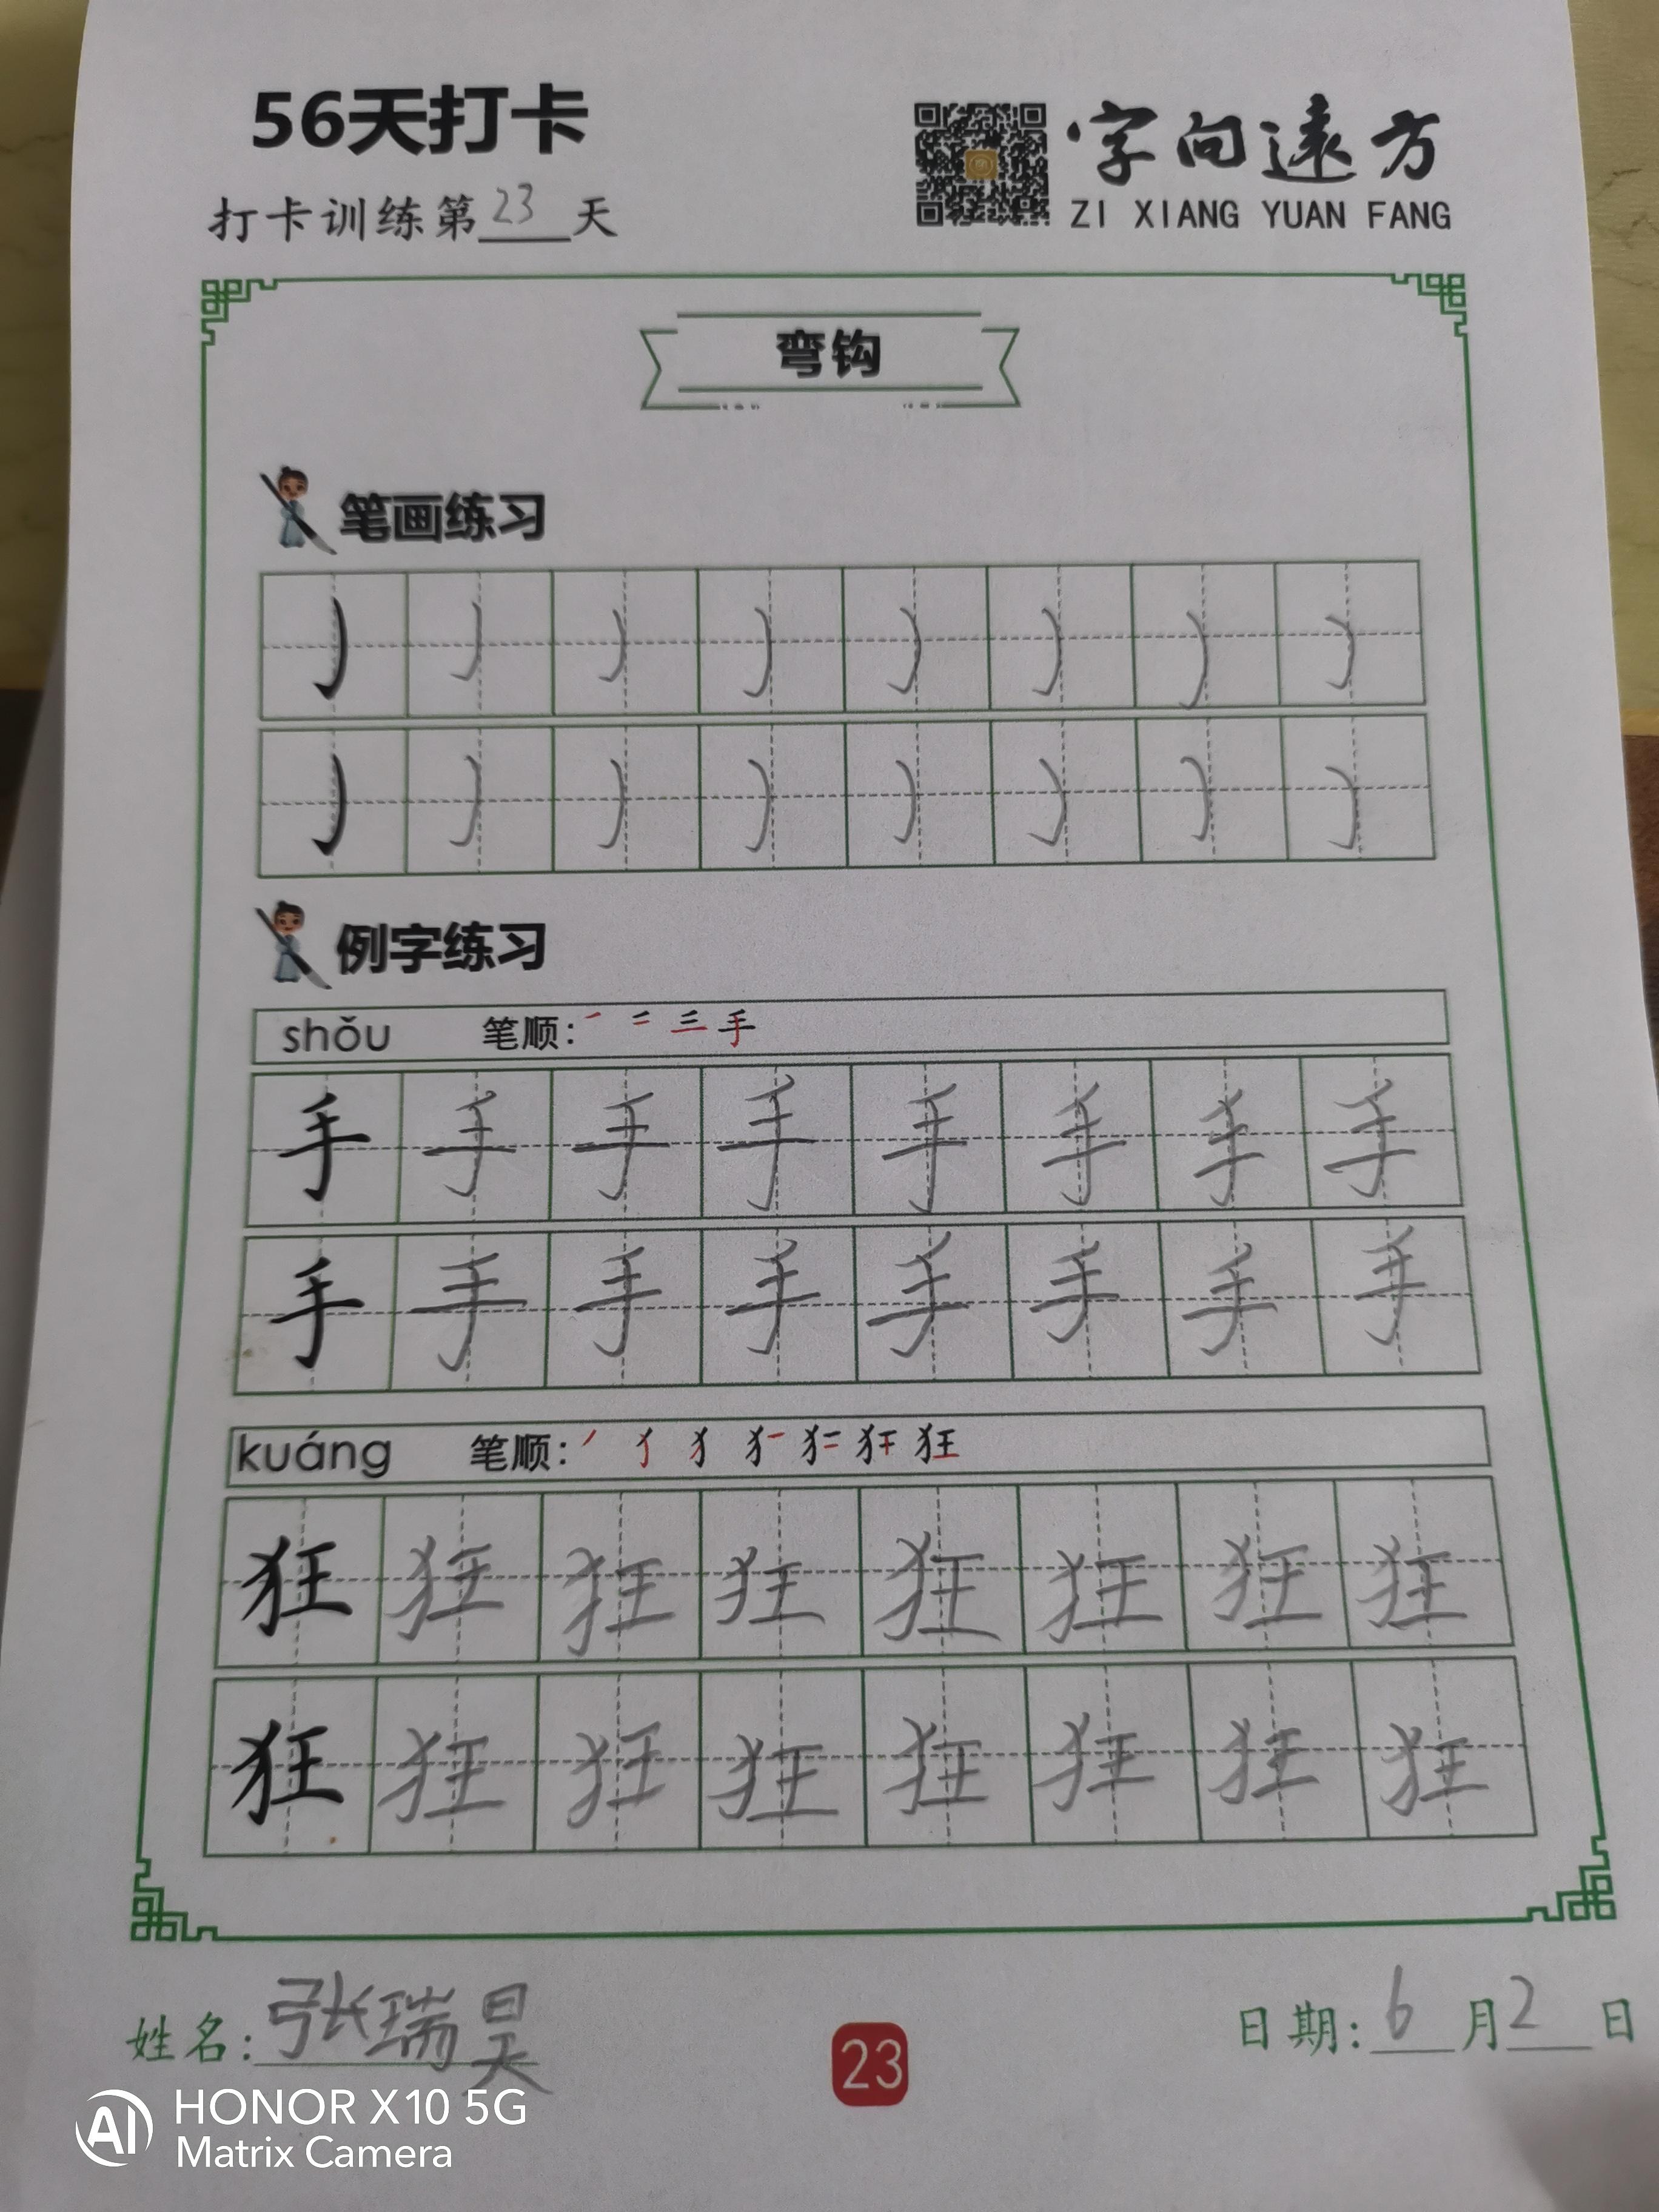 56天打卡
字向遠方
打卡训练第23天
ZI XIANG YUAN FANG
弯钩
笔画练习
例字练习
shǒu 笔顺: 手
手 手 手 手 手 手 手 手
手 手 手 手 手 手 手 手
kuáng 笔顺: 狂
狂 狂 狂 狂 狂 狂 狂 狂
狂 狂 狂 狂 狂 狂 狂 狂
姓名: 张瑞昊
23
日期: 6月2日
AI HONOR X10 5G
Matrix Camera